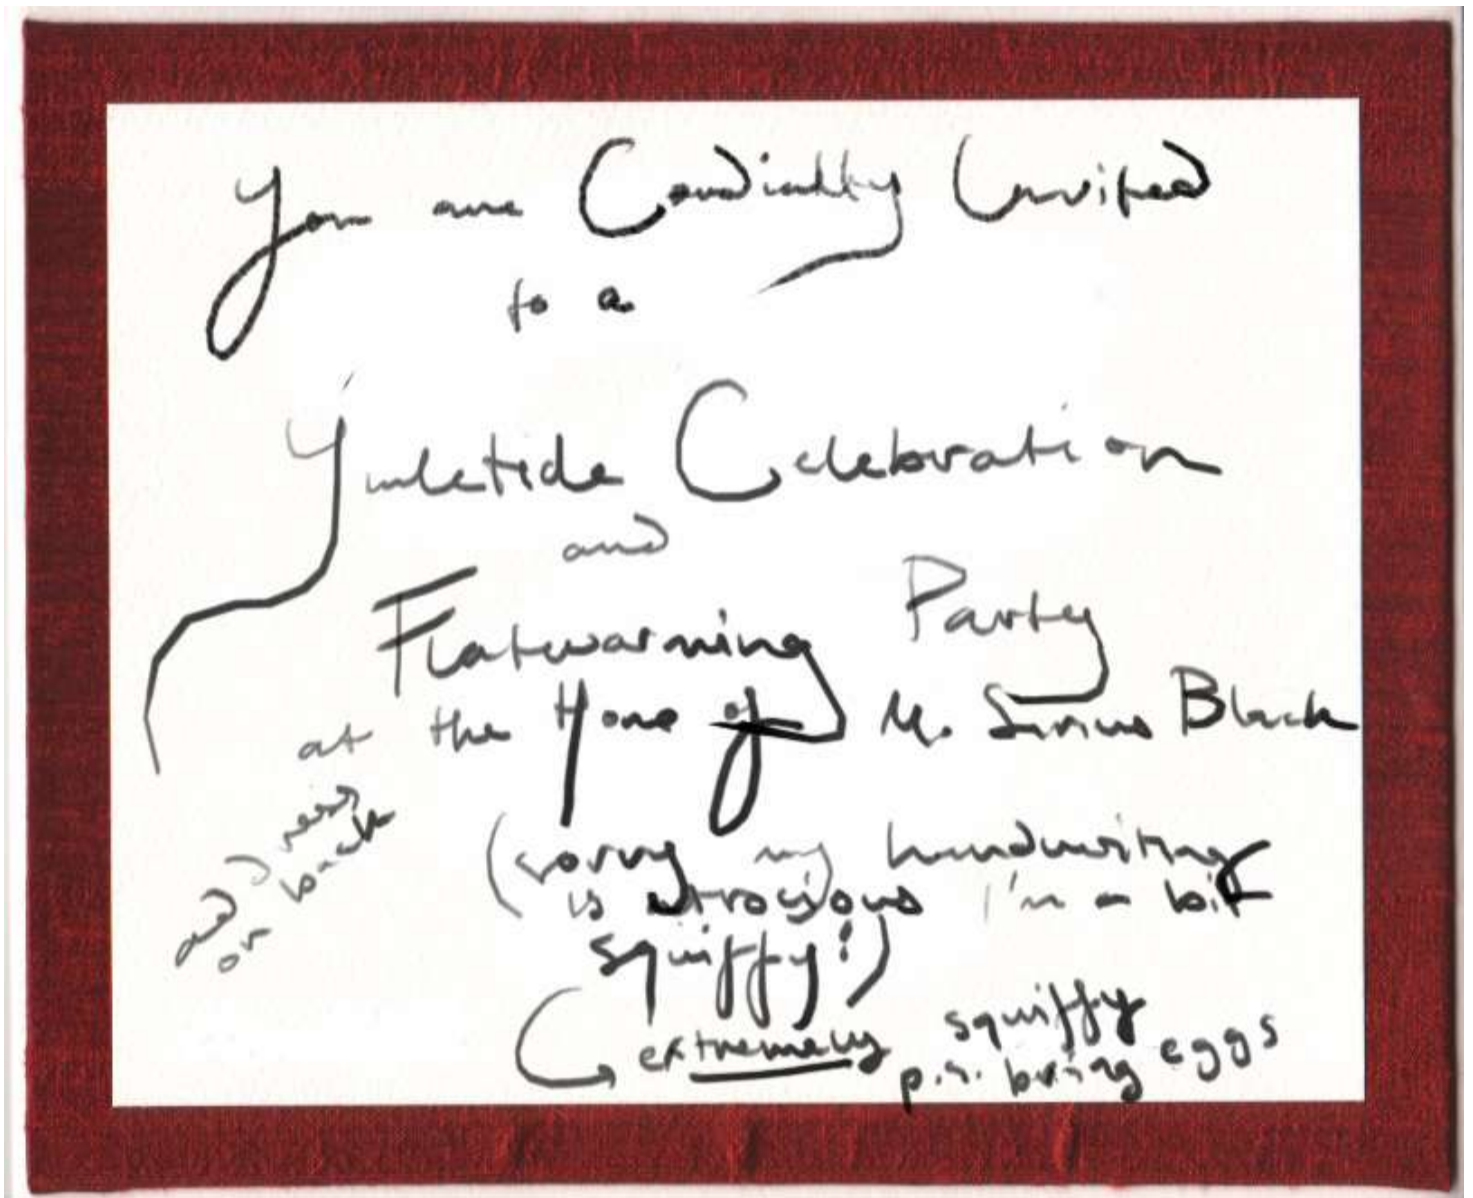 You are Cordially Invited
to a
Yuletide Celebration
and
Flatwarming Party
at the Home of M. Sirius Black
(sorry my handwriting
is atrocious I'm a bit
squiffy!)
extremely squiffy
p.s. bring eggs
on back